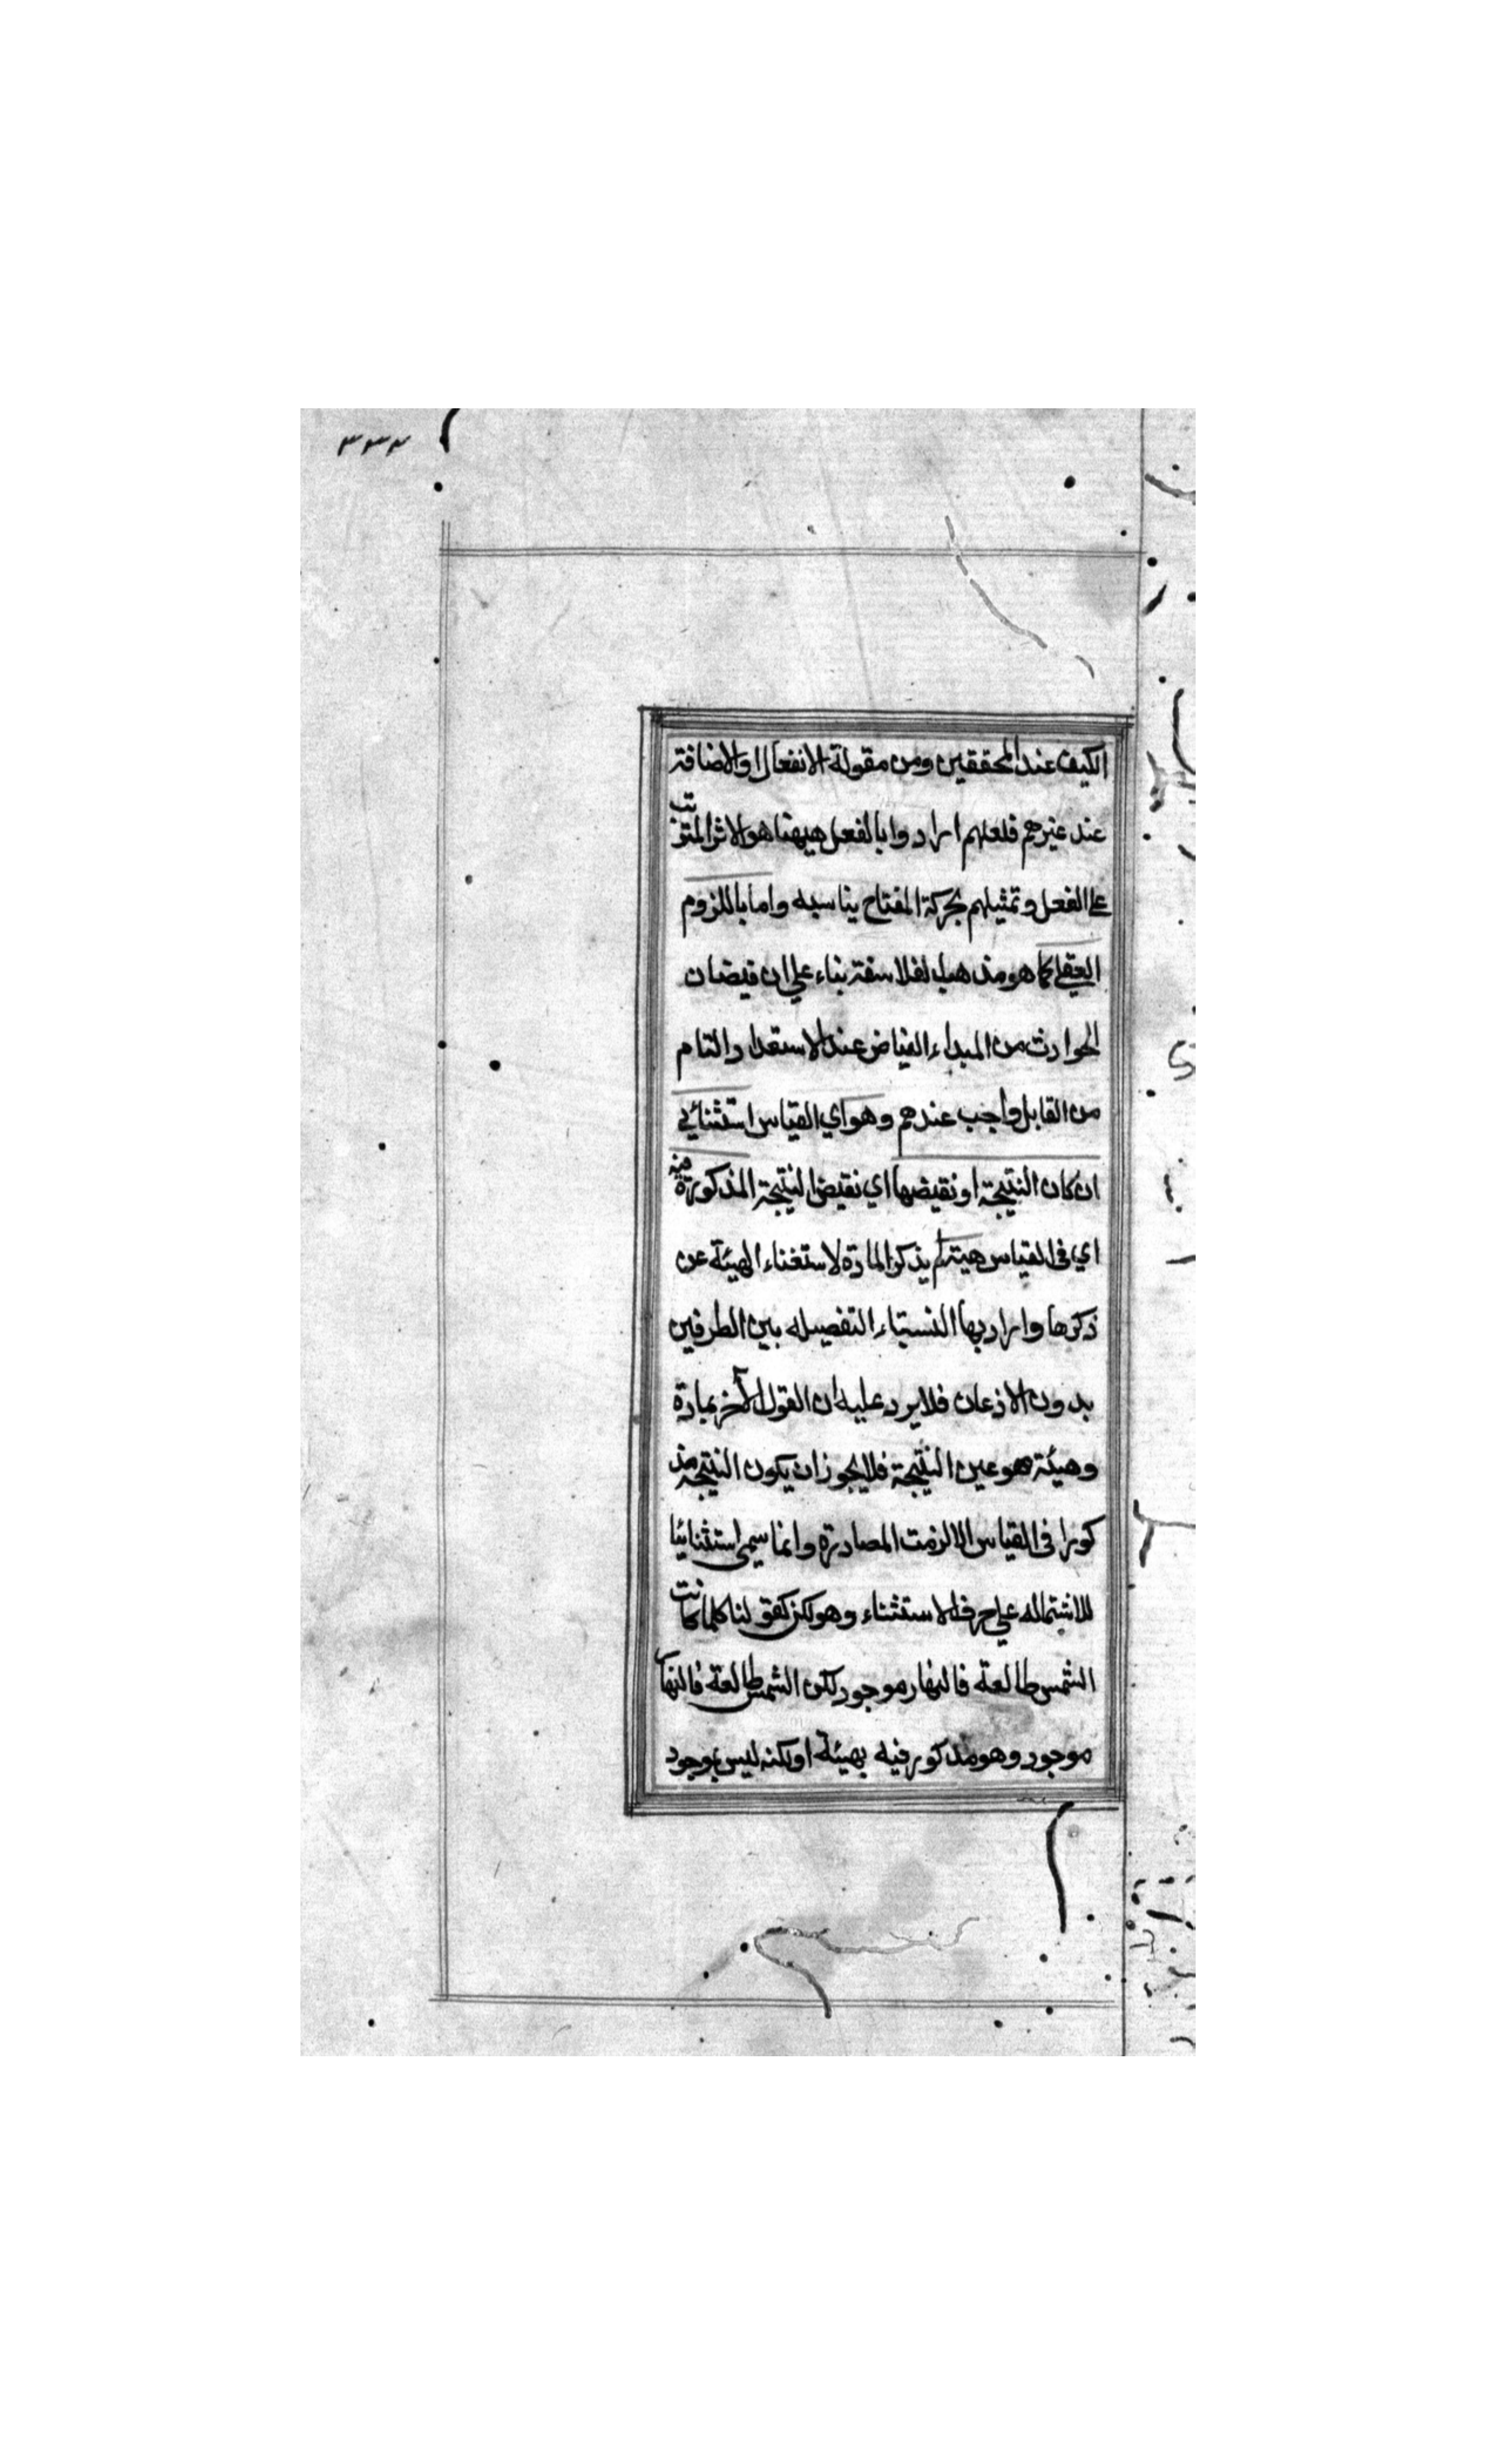 ٣٣٢
الكيف عند المحققين ومن مقولة الانفعال او الاضافة
عند غيرهم فلعلهم ارادوا بالفعل هيهنا هو الاثر المترتب
على الفعل وتمثيلهم بحركة المفتاح يناسبه واما باللزوم
العقلي كما هو مذهب الفلاسفة بناء على ان فيضان
الحوادث من المبداء الفياض عند الاستعداد التام
من القابل واجب عندهم وهو اي القياس استثنائي
ان كان النتيجة او نقيضها اي نقيض النتيجة المذكورة فيه
اي في القياس هيئة لم يذكر المادة لاستغناء الهيئة عن
ذكرها واراد بها التفصيله بين الطرفين
بدون الاذعان فلا يرد عليه ان القول الآخر بمادة
وهيئة هو عين النتيجة فلا يجوز ان يكون النتيجة مذ
كورا في القياس الا لزمت المصادرة وانما سمى استثنائيا
للاشتماله على حرف الاستثناء وهو لكن كقولنا كلما كانت
الشمس طالعة فالنهار موجود لكن الشمس طالعة فالنهار
موجود وهو مذكور فيه بهيئة او لكنه ليس بموجود